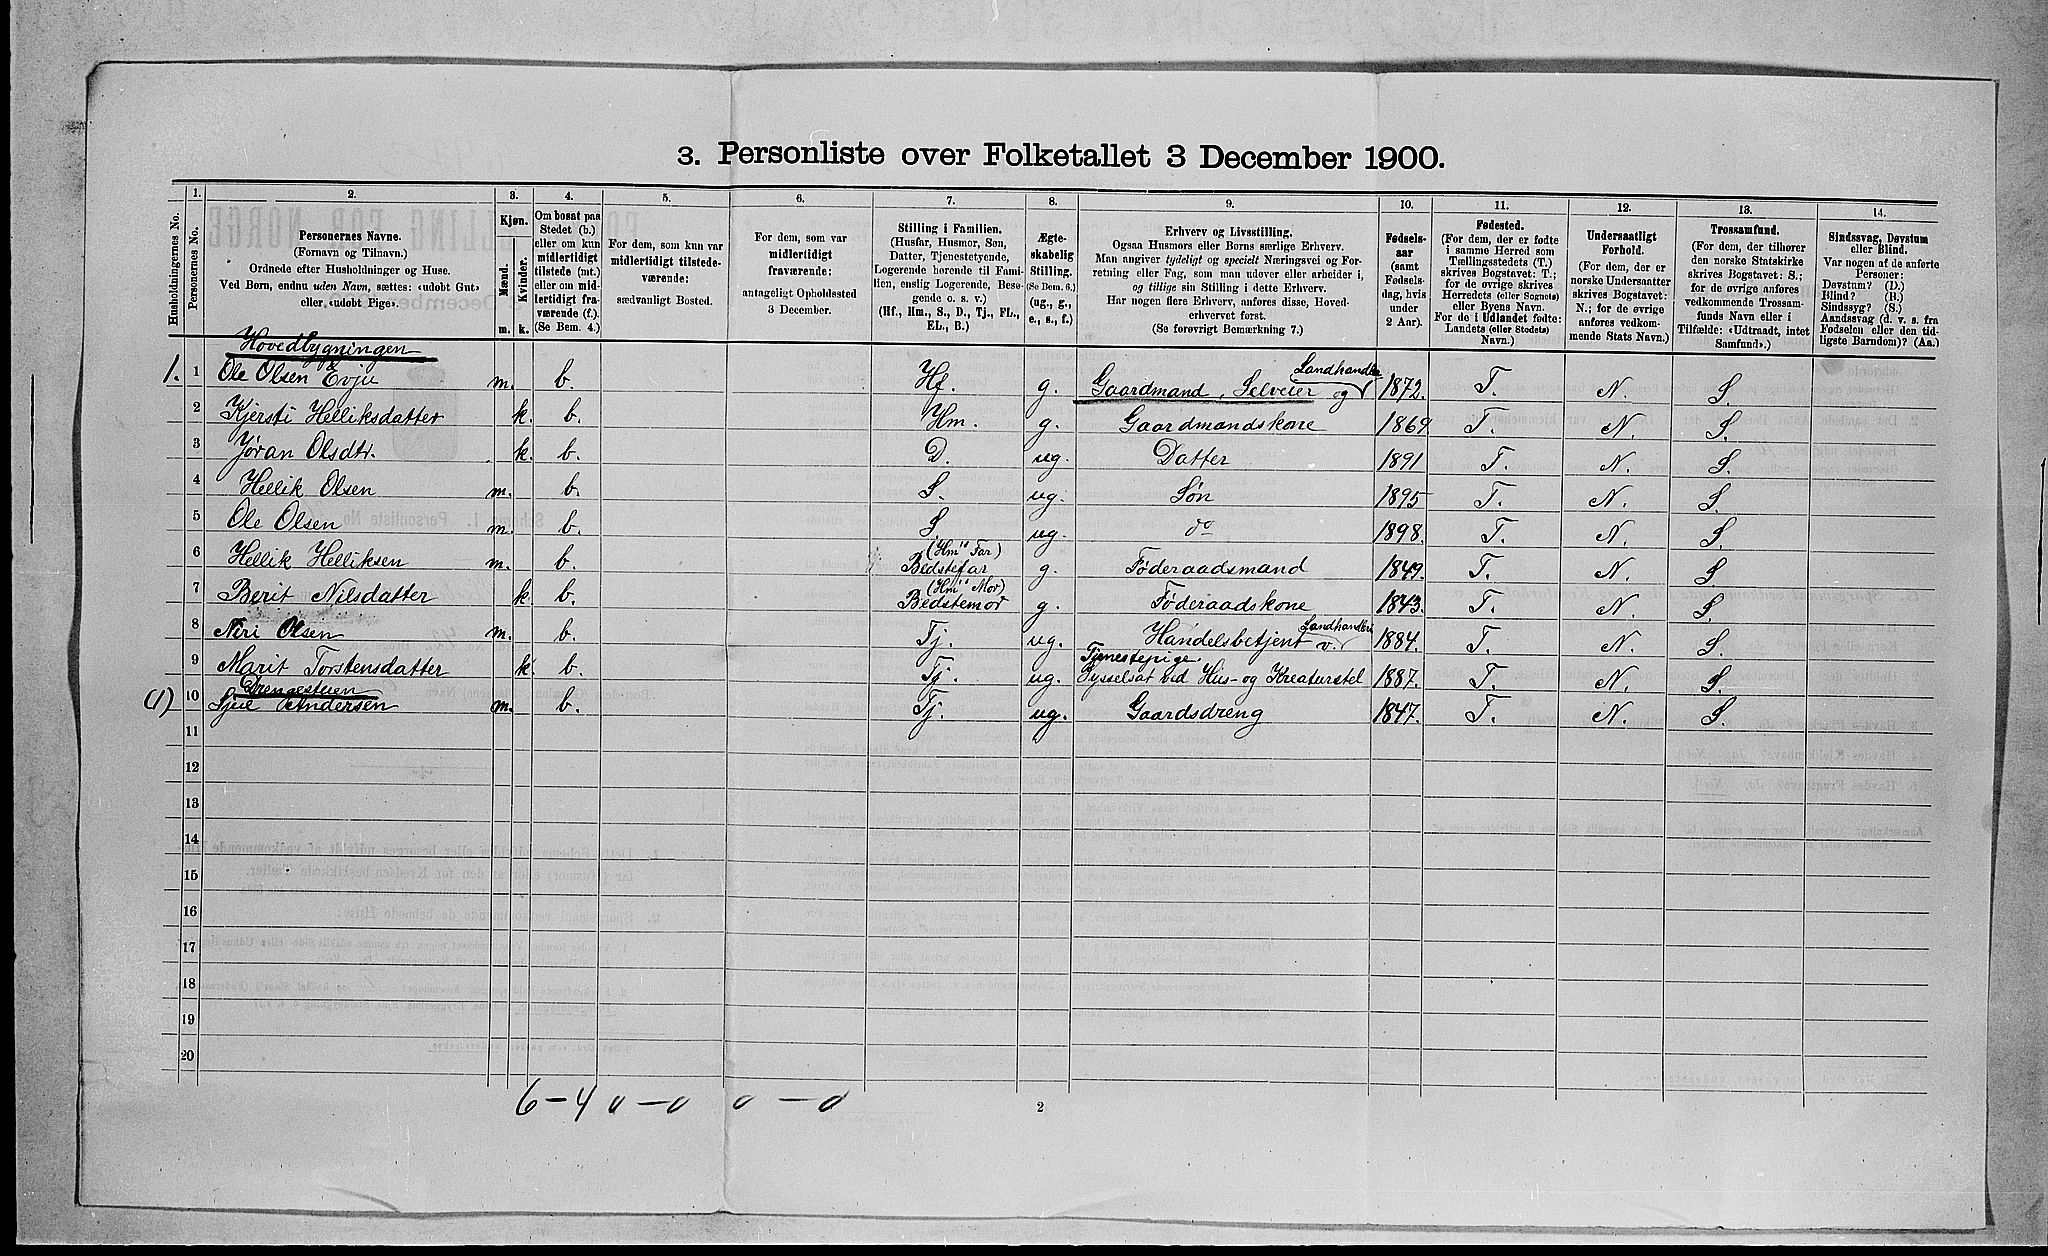 3. Personliste over Folketallet 3 December 1900.
1. 2. 3. 4. 5. 6. 7. 8. 9. 10. 11. 12. 13. 14.
Husholdningernes No.
Personernes No.
Personernes Navne.
(Fornavn og Tilnavn.)
Ordnede efter Husholdninger og Huse.
Ved Børn, endnu uden Navn, sættes: «udobt Gut»
eller «udobt Pige».
Kjøn.
Mænd.
Kvinder.
m. k.
Om bosat paa
Stedet (b.)
eller om kun
midlertidigt
tilstede (mt.)
eller om mid-
lertidigt fra-
værende (f.).
(Se Bem. 4.)
For dem, som kun var
midlertidigt tilstede-
værende:
sædvanligt Bosted.
For dem, som var
midlertidigt
fraværende:
antageligt Opholdssted
3 December.
Stilling i Familien.
(Husfar, Husmor, Søn,
Datter, Tjenestetyende,
Logerende hørende til Fami-
lien, enslig Logerende, Besø-
gende o. s. v.)
(Hf., Hm., S., D., Tj., FL.,
EL., B.)
Ægte-
skabelig
Stilling.
(Se Bem. 6.)
(ug., g.,
e., s., f.)
Erhverv og Livsstilling.
Ogsaa Husmors eller Børns særlige Erhverv.
Man angiver tydeligt og specielt Næringsvei og For-
retning eller Fag, som man udøver eller arbeider i,
og tillige sin Stilling i dette Erhverv.
Har nogen flere Erhverv, anføres disse, Hoved-
erhvervet først.
(Se forøvrigt Bemærkning 7.)
Fødsels-
aar
(samt
Fødsels-
dag, hvis
under
2 Aar).
Fødested.
(For dem, der er fødte
i samme Herred som
Tællingsstedets (T.)
skrives Bogstavet: T.;
for de øvrige skrives
Herredets (eller Sognets)
eller Byens Navn.
For de i Udlandet fødte:
Landets (eller Stedets)
Navn.)
Undersaatligt
Forhold.
(For dem, der er
norske Undersaatter
skrives Bogstavet:
N.; for de øvrige
anføres vedkom-
mende Stats Navn.)
Trossamfund.
(For dem, der tilhører
den norske Statskirke
skrives Bogstavet: S.;
for de øvrige anføres
vedkommende Trossam-
funds Navn eller i
Tilfælde: «Udtraadt, intet
Samfund».)
Sindssvag, Døvstum
eller Blind.
Var nogen af de anførte
Personer:
Døvstum? (D.)
Blind? (B.)
Sindssyg? (S.)
Aandssvag (d. v. s. fra
Fødselen eller den tid-
ligste Barndom)? (Aa.)
Hovedbygningen
1. 1 Ole Olsen Evju m. b. Hf. g. Gaardmand, Selveier og Landhandler 1872. T. N. S.
2 Kjersti Helliksdatter k. b. Hm. g. Gaardmandskone 1869 T. N. S.
3 Jøran Olsdtr. k. b. D. ug. Datter 1891 T. N. S.
4 Hellik Olsen m. b. S. ug. Søn 1895 T. N. S.
5 Ole Olsen m. b. S. ug. do 1898. T. N. S.
6 Hellik Helliksen m. b. (Hm's Far) Bedstefar g. Føderaadsmand 1849. T. N. S.
7 Berit Nilsdatter k b. (Hm's Mor) Bedstemor g. Føderaadskone 1843. T. N. S.
8 Niri Olsen m. b. Tj. ug. Handelsbetjent v. Landhandleri 1884. T. N. S.
9 Marit Torstensdatter k. b. Tj. ug. Tjenestepige. Sysselsat ved Hus- og Kreaturstel 1887. T. N. S.
Drengestuen
(1) 10 Sjul Andersen m. b. Tj. ug. Gaardsdreng 1847. T. N. S.
11
12
13
14
15
16
17
18
19
20
6-4 0-0 0-0
2